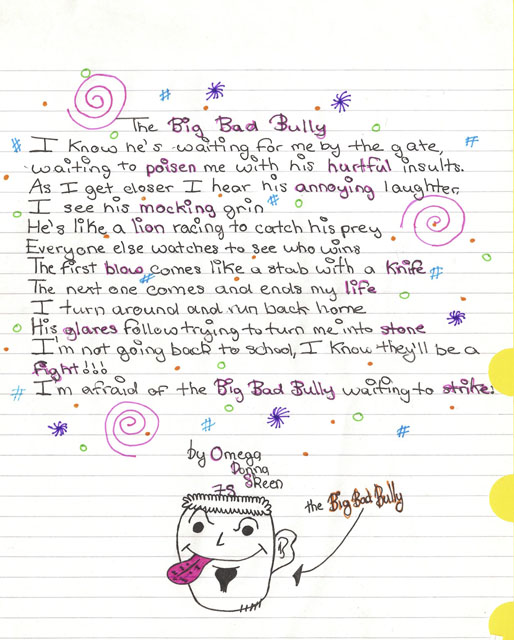 The Big Bad Bully
I know he's waiting for me by the gate,
waiting to poisen me with his hurtful insults.
As I get closer I hear his annoying laughter,
I see his mocking grin
He's like a lion racing to catch his prey
Everyone else watches to see who wins
The first blow comes like a stab with a knife
The next one comes and ends my life
I turn around and run back home
His glares follow trying to turn me into stone
I'm not going back to school, I know they'll be a
fight!!!
I'm afraid of the Big Bad Bully waiting to strike.
by Omega
Donna
Skeen
7S
the Big Bad Bully
B